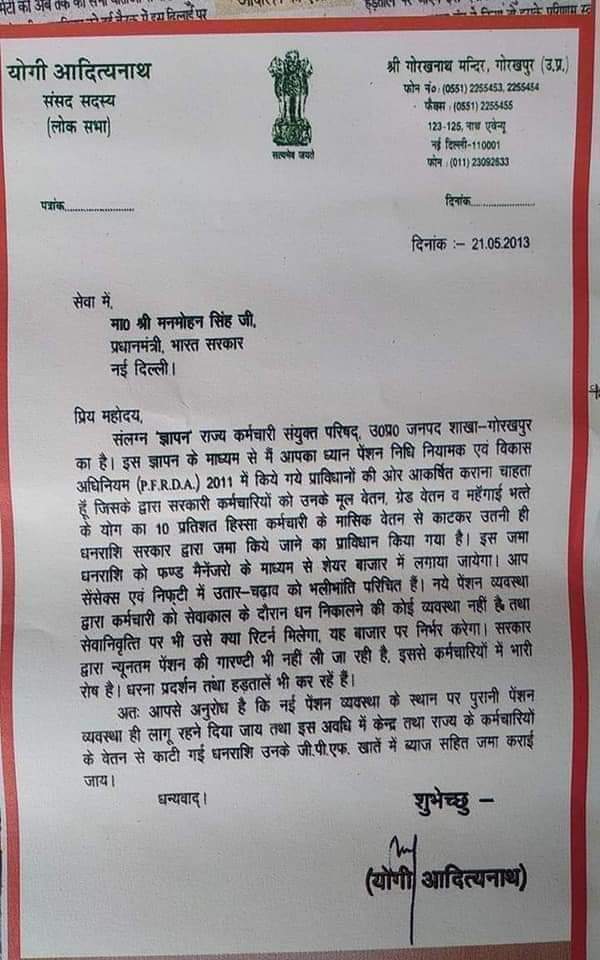 योगी आदित्यनाथ
संसद सदस्य
(लोक सभा)
सत्यमेव जयते
श्री गोरखनाथ मन्दिर, गोरखपुर (उ.प्र.)
फोन नं० : (0551) 2255453, 2255454
फैक्स : (0551) 2255455
123-125, नाथ एवेन्यू
नई दिल्ली-110001
फोन : (011) 23092633
पत्रांक........................
दिनांक........................
दिनांक :- 21.05.2013
सेवा में,
मा0 श्री मनमोहन सिंह जी,
प्रधानमंत्री, भारत सरकार
नई दिल्ली।
प्रिय महोदय,
संलग्न 'ज्ञापन' राज्य कर्मचारी संयुक्त परिषद्, उ0प्र0 जनपद शाखा–गोरखपुर
का है। इस ज्ञापन के माध्यम से मैं आपका ध्यान पेंशन निधि नियामक एवं विकास
अधिनियम (P.F.R.D.A.) 2011 में किये गये प्राविधानों की ओर आकर्षित कराना चाहता
हूँ जिसके द्वारा सरकारी कर्मचारियों को उनके मूल वेतन, ग्रेड वेतन व महँगाई भत्ते
के योग का 10 प्रतिशत हिस्सा कर्मचारी के मासिक वेतन से काटकर उतनी ही
धनराशि सरकार द्वारा जमा किये जाने का प्राविधान किया गया है। इस जमा
धनराशि को फण्ड मैनेंजरो के माध्यम से शेयर बाजार में लगाया जायेगा। आप
सेंसेक्स एवं निफ्टी में उतार–चढ़ाव को भलीभांति परिचित हैं। नये पेंशन व्यवस्था
द्वारा कर्मचारी को सेवाकाल के दौरान धन निकालने की कोई व्यवस्था नहीं है, तथा
सेवानिवृत्ति पर भी उसे क्या रिटर्न मिलेगा, यह बाजार पर निर्भर करेगा। सरकार
द्वारा न्यूनतम पेंशन की गारण्टी भी नहीं ली जा रही है, इससे कर्मचारियों में भारी
रोष है। धरना प्रदर्शन तथा हड़तालें भी कर रहें हैं।
अतः आपसे अनुरोध है कि नई पेंशन व्यवस्था के स्थान पर पुरानी पेंशन
व्यवस्था ही लागू रहने दिया जाय तथा इस अवधि में केन्द्र तथा राज्य के कर्मचारियों
के वेतन से काटी गई धनराशि उनके जी.पी.एफ. खातें में ब्याज सहित जमा कराई
जाय।
धन्यवाद्।
शुभेच्छु –
(योगी आदित्यनाथ)